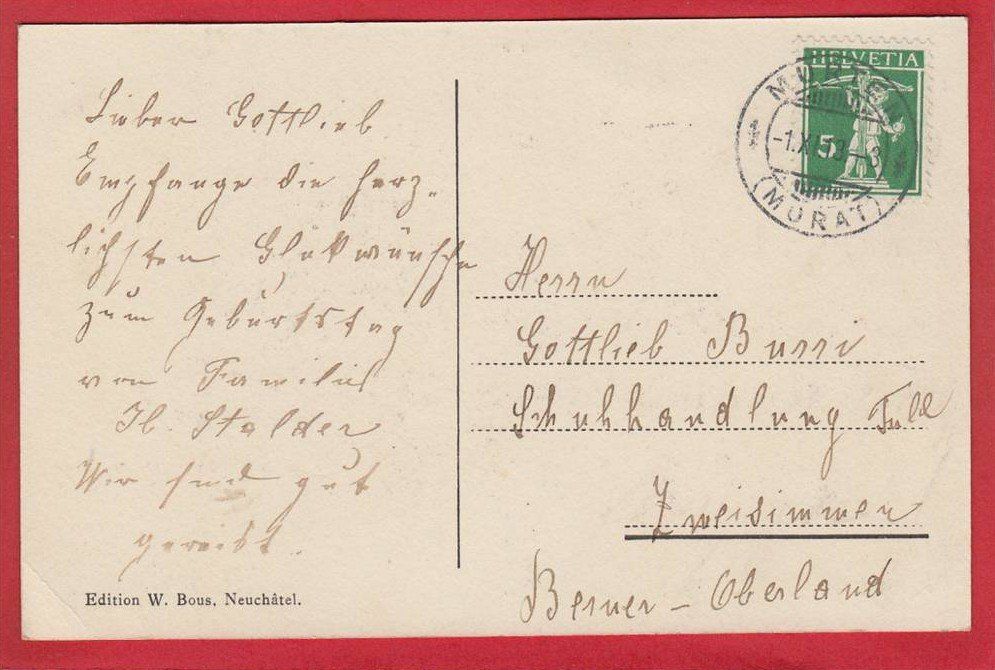 Lieber Gottlieb
Empfange die herz-
lichsten Glükwünsche
zum Geburtstag
von Familie
Stalder
Wir sind gut
gereist.
Edition W. Bous, Neuchâtel.
HELVETIA
5
MURTEN
-1.XI.13-3
(MURAT)
Herrn
Gottlieb Burri
Schuhhandlung
Zweisimmen
Berner-Oberland